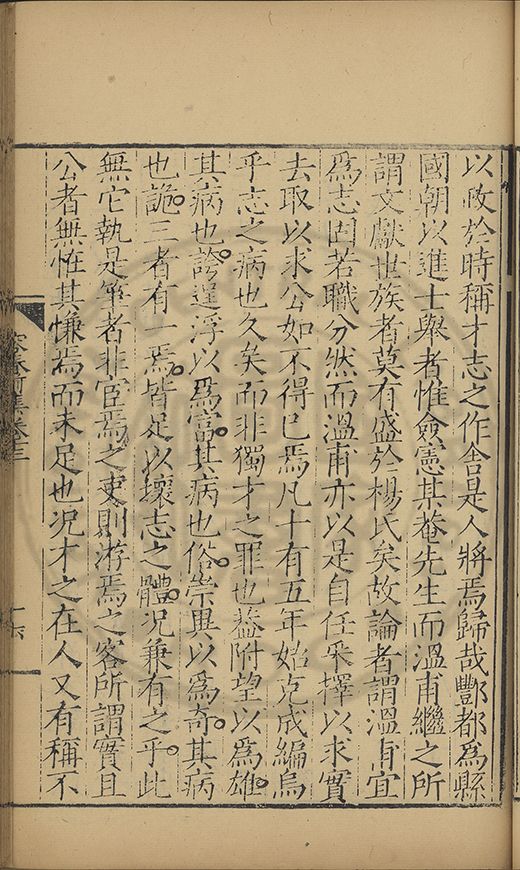 以政於時稱才志之作舍是人將焉歸哉酆都為縣
國朝以進士舉者惟僉憲某菴先生而溫甫繼之所
謂文獻世族者莫有盛於楊氏矣故論者謂溫甫宜
爲志固若職分然而溫甫亦以是自任釆擇以求實
去取以求公如不得已焉凡十有五年始克成編烏
乎志之病也久矣而非獨才之罪也葢附望以爲雄
其病也誇逞浮以爲富其病也俗崇異以爲竒其病
也詭三者有一焉皆足以壞志之體况兼有之乎此
無它執是筆者非宦焉之吏則游焉之客所謂實且
公者無恠其慊焉而未足也况才之在人又有稱不
集卷三